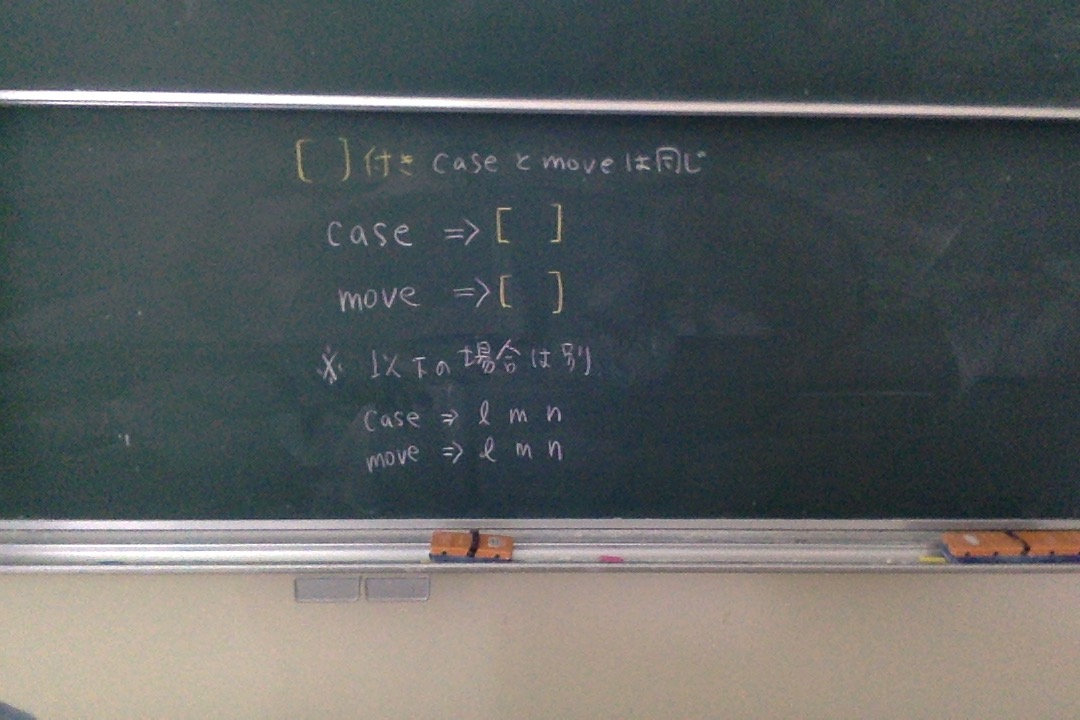 [ ]付き caseとmoveは同じ
case => [ ]
move => [ ]
※ 以下の場合は別
case => l m n
move => l m n